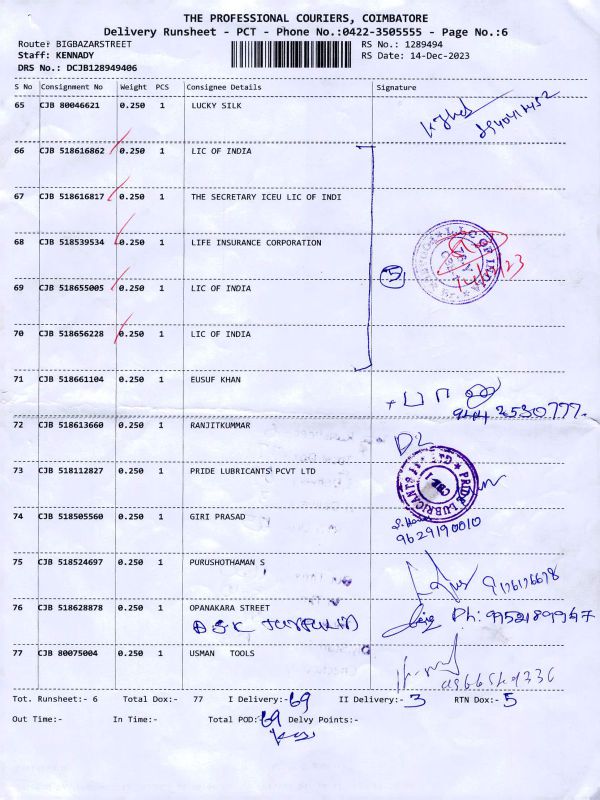 THE PROFESSIONAL COURIERS, COIMBATORE
Delivery Runsheet - PCT - Phone No.:0422-3505555 - Page No.:6
Route: BIGBAZARSTREET RS No.: 1289494
Staff: KENNADY RS Date: 14-Dec-2023
DRS No.: DCJB128949406
S No Consignment No Weight PCS Consignee Details Signature
65 CJB 80046621 0.250 1 LUCKY SILK
66 CJB 518616862 0.250 1 LIC OF INDIA
67 CJB 518616817 0.250 1 THE SECRETARY ICEU LIC OF INDI
68 CJB 518539534 0.250 1 LIFE INSURANCE CORPORATION
5
69 CJB 518655005 0.250 1 LIC OF INDIA
70 CJB 518656228 0.250 1 LIC OF INDIA
71 CJB 518661104 0.250 1 EUSUF KHAN
72 CJB 518613660 0.250 1 RANJITKUMMAR
D2
73 CJB 518112827 0.250 1 PRIDE LUBRICANTS PCVT LTD
PRIDE LUBRICANTS
74 CJB 518505560 0.250 1 GIRI PRASAD
9629190010
75 CJB 518524697 0.250 1 PURUSHOTHAMAN S
76 CJB 518628878 0.250 1 OPANAKARA STREET
Ph:
77 CJB 80075004 0.250 1 USMAN TOOLS
Tot. Runsheet:- 6 Total Dox:- 77 I Delivery:- 69 II Delivery:- 3 RTN Dox:- 5
Out Time:- In Time:- Total POD:- 69 Delvy Points:-